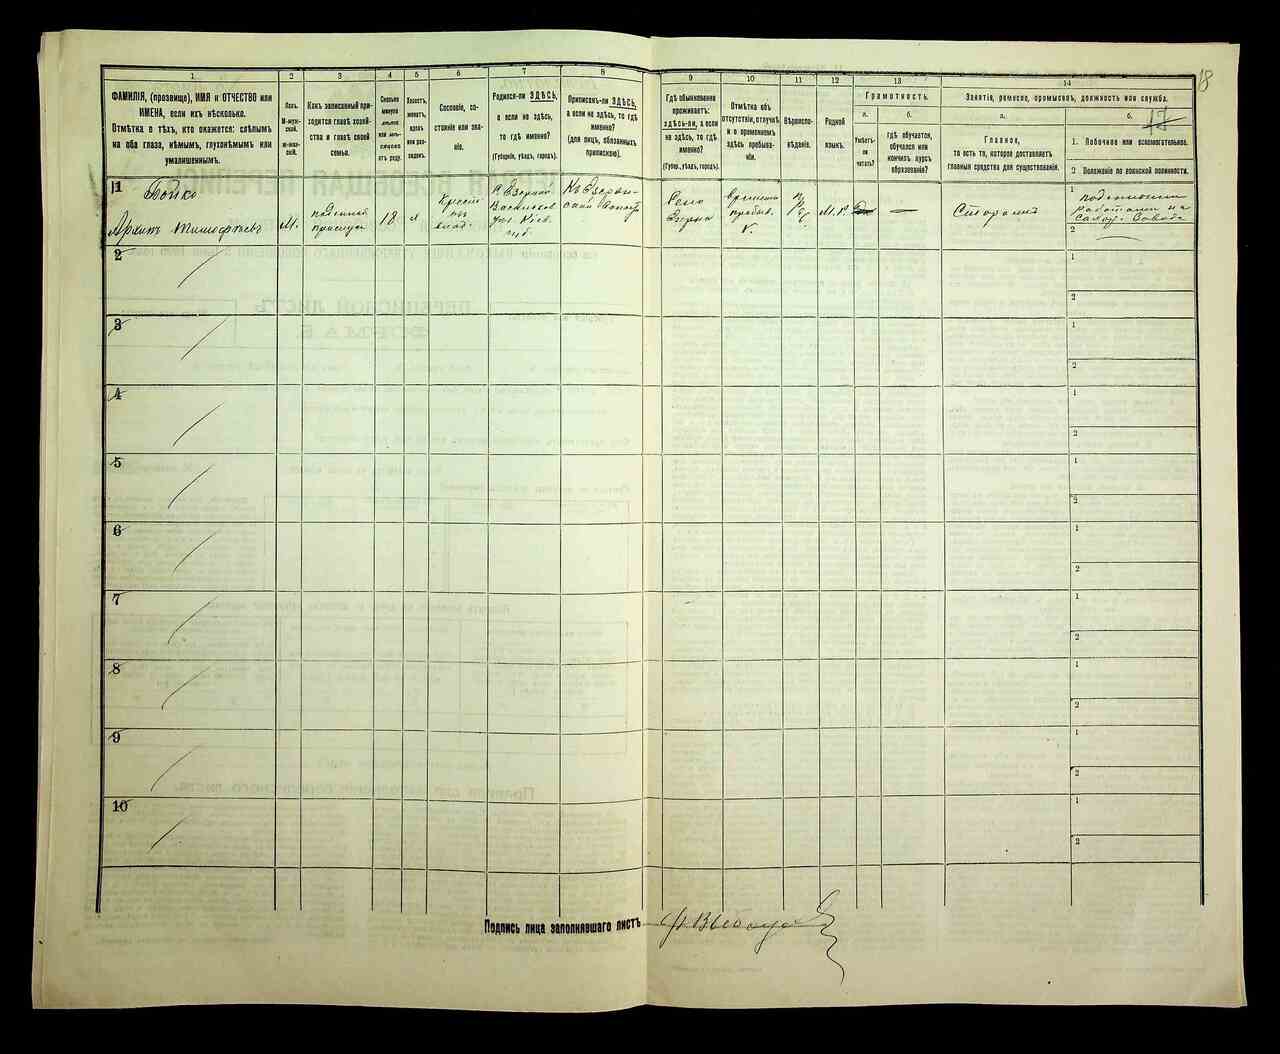 18
17
1.
ФАМИЛІЯ, (прозвище), ИМЯ и ОТЧЕСТВО или
ИМЕНА, если ихъ нѣсколько.
Отмѣтка о тѣхъ, кто окажется: слѣпымъ
на оба глаза, нѣмымъ, глухонѣмымъ или
умалишеннымъ.
2
Полъ.
М-муж-
ской.
Ж-жен-
скій.
3
Какъ записанный при-
ходится главѣ хозяй-
ства и главѣ своей
семьи.
4
Сколько
минуло
лѣтъ
или мѣс-
яцевъ
отъ роду.
5
Холостъ,
женатъ,
вдовъ
или раз-
веденъ.
6
Сословіе, со-
стояніе или зва-
ніе.
7
Родился-ли ЗДѢСЬ,
а если не здѣсь,
то гдѣ именно?
(Губернія, уѣздъ, городъ).
8
Приписанъ-ли ЗДѢСЬ,
а если не здѣсь, то гдѣ
именно?
(для лицъ, обязанныхъ
припискою).
9
Гдѣ обыкновенно
проживаетъ:
здѣсь-ли, а если
не здѣсь, то гдѣ
именно?
(Губер., уѣздъ, городъ).
10
Отмѣтка объ
отсутствіи, отлучкѣ
и о временномъ
здѣсь пребыва-
ніи.
11
Вѣроиспо-
вѣданіе.
12
Родной
языкъ.
13
Грамотность.
а.
Умѣетъ-
ли
читать?
б.
гдѣ обучается,
обучался или
кончилъ курсъ
образованія?
14
Занятіе, ремесло, промыселъ, должность или служба.
а.
Главное,
то есть то, которое доставляетъ
главныя средства для существованія.
б.
1. Побочное или вспомогательное.
2 Положеніе по воинской повинности.
1
Бойко
Архипъ Тимофѣевъ
М.
18
С. Езерной
Васильков
уѣз. Кіев.
губ.
Село
Езерна
М. Р.
—
1
2
2
1
2
3
1
2
4
1
2
5
1
2
6
1
2
7
1
2
8
1
2
9
1
2
10
1
2
Подпись лица заполнявшаго листъ